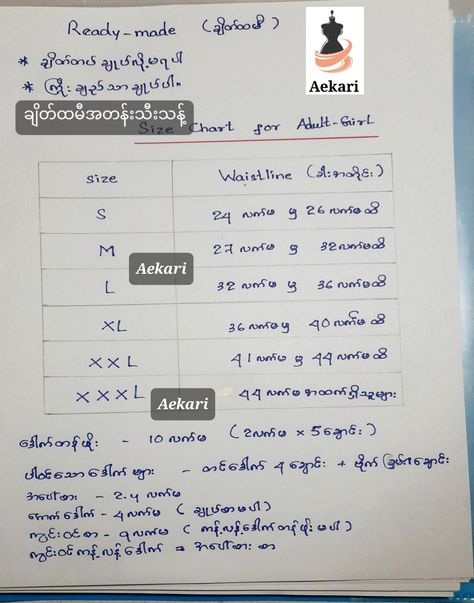 Ready-made (ချိတ်ထမီ)
Aekari
* ချိတ်တပ် ချုပ်လို့မရပါ
* ကြိုးချည်သာချုပ်ပါ။
ချိတ်ထမီအတန်းသီးသန့်
Size Chart for Adult-Girl
size Waistline (ခါးအတိုင်း)
S 24 လက်မ မှ 26 လက်မထိ
M 27 လက်မ မှ 32လက်မထိ
Aekari
L 32 လက်မ မှ 36 လက်မထိ
XL 36 လက်မ မှ 40 လက်မထိ
XXL 41 လက်မ မှ 44 လက်မထိ
XXXL 44 လက်မအထက်ရှိသူများ
Aekari
ဒေါက်တန်ဖိုး - 10 လက်မ (2လက်မ × 5ချောင်း)
ပါဝင်သောဒေါက်များ - တင်ဒေါက် 4 ချောင်း + ဗိုက်
အပေါ်စား - 2.5 လက်မ
ကောက်ဒေါက် - 4လက်မ (ချုပ်စာမပါ)
ကျွင်းဝင်စာ - ၇လက်မ (ကန့်လန့်ဒေါက်တန်ဖိုးမပါ)
ကျွင်းဝင်ကန့်လန့်ဒေါက် = အပေါ်စား စာ